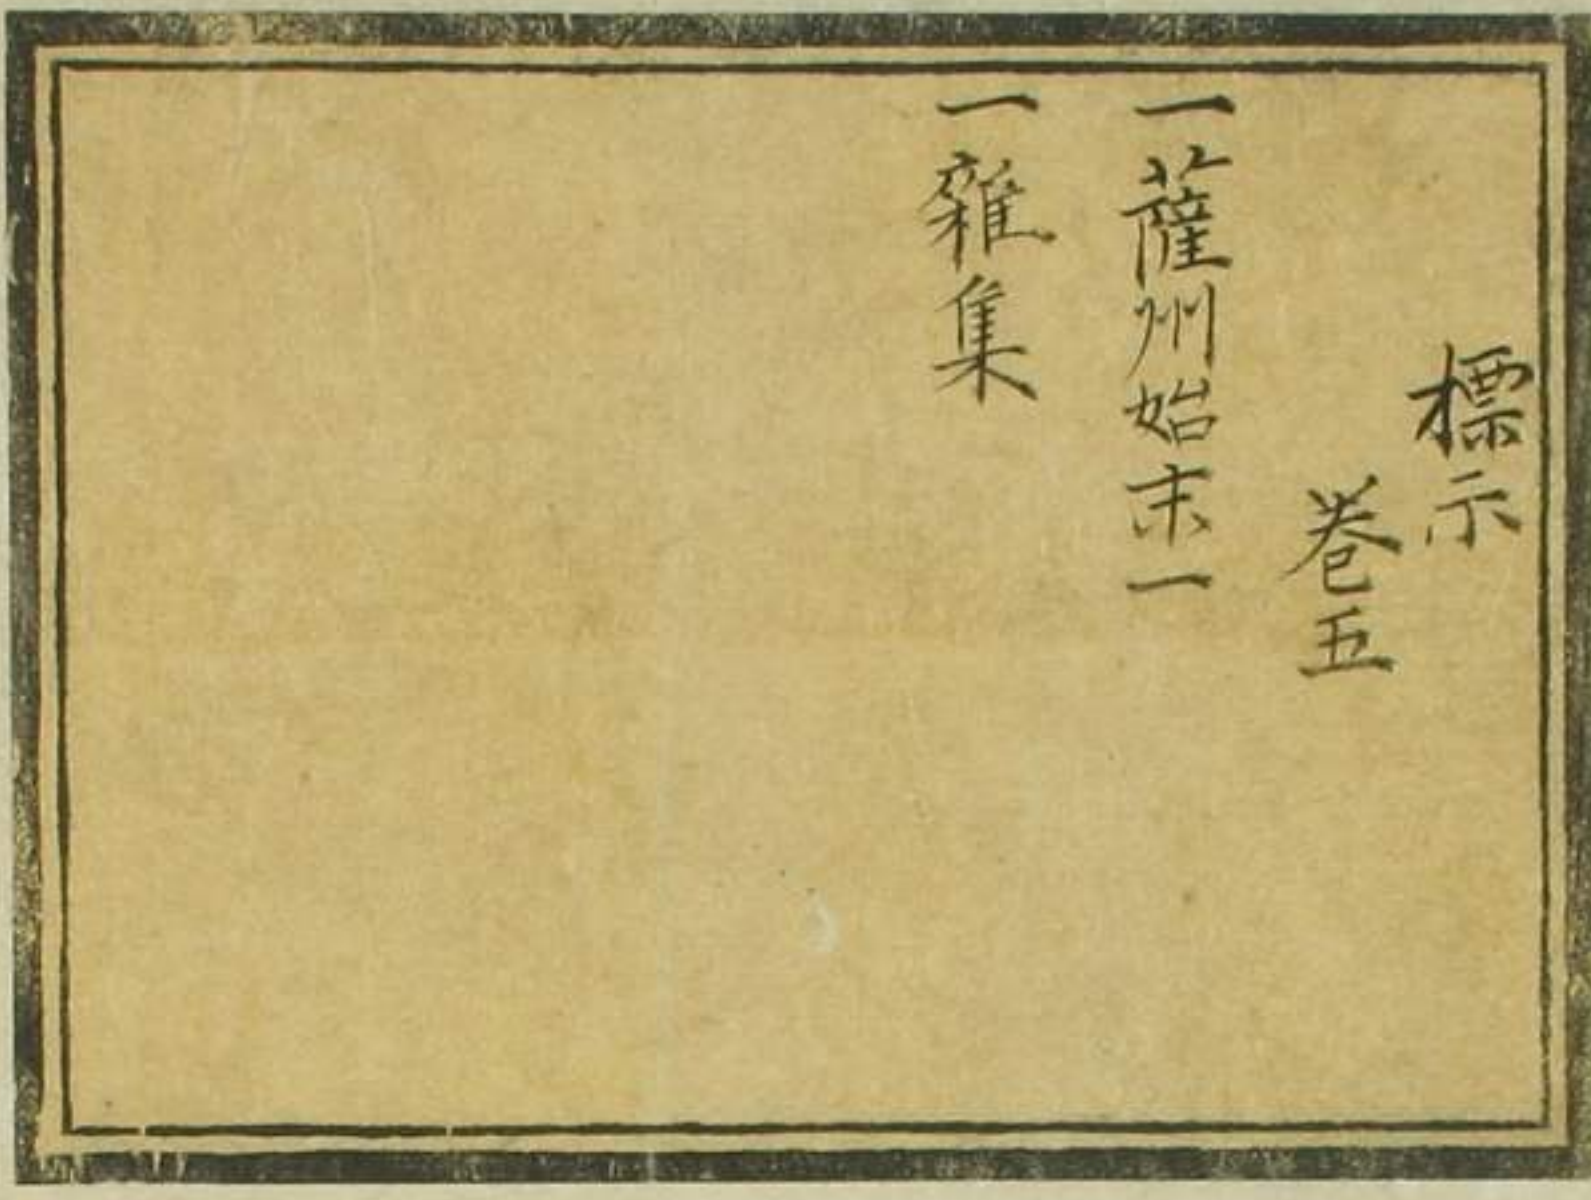 標示
巻五
一薩州始末一
一雜集